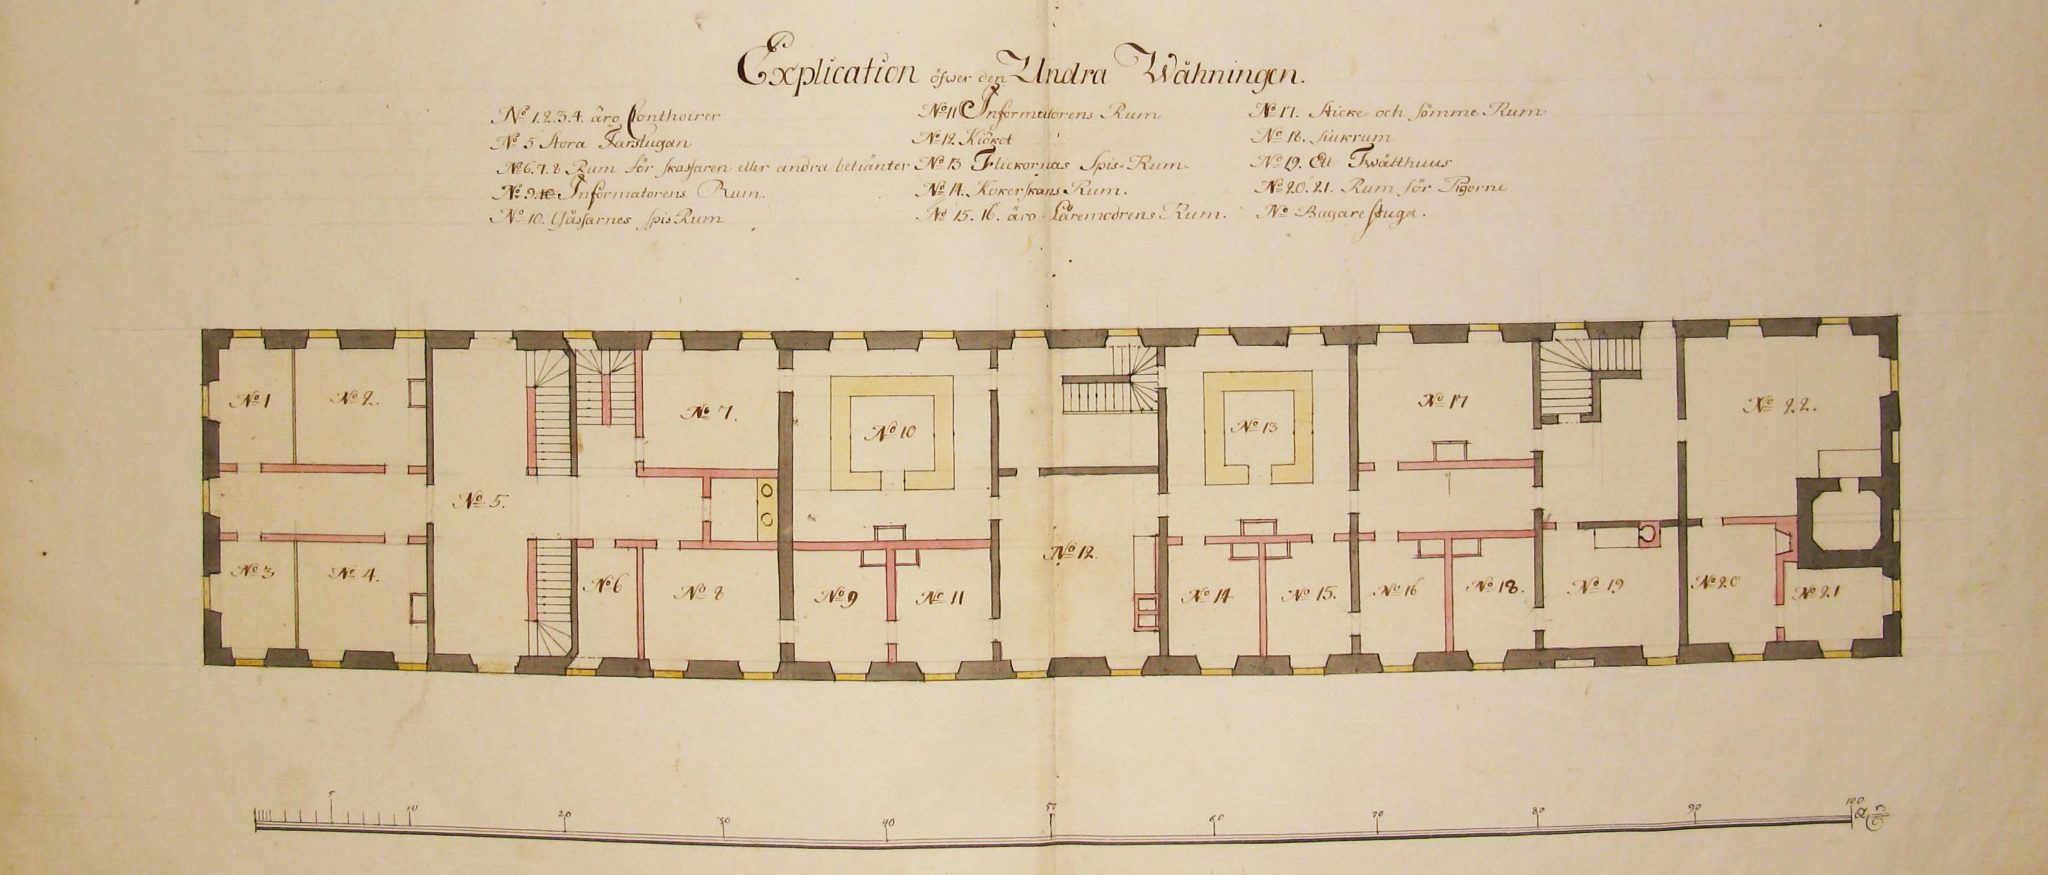 Explication öfwer den Undra Wåhningen.
No 1.2.3.4. äro Conthoirer
No 5 Stora Farstugan
No 6.7.8 Rum för skaffaren eller andra betiänter
No 9. Informatorens Rum.
No 10. Gåssarnes spis Rum
No 11 Informatorens Rum
No 12. Kiöket
No 13 Flickornas Spis-Rum.
No 14. Kokerskans Rum.
No 15. 16. äro Läremodrens Rum.
No 17. Sticke och sömme Rum
No 18. siukrum
No 19. Ett Twätthuus
No 20. 21. Rum för Pigorne
No Bagare stuga.
No 1
No 2.
No 7.
No 10
No 13
No 17
No 22.
No 5.
No 12.
No 3
No 4.
No 6
No 8
No 9
No 11
No 14
No 15.
No 16
No 18.
No 19
No 20
No 21
5 10 20 30 40 50 60 70 80 90 100